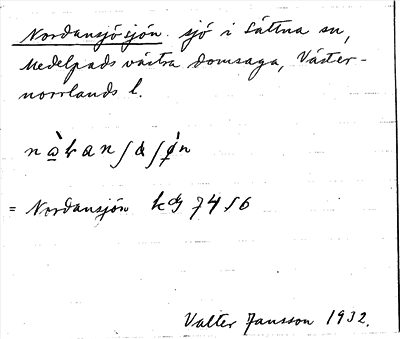 Nordansjösjön. sjö i Sättna sn,
Medelpads västra domsaga, Väster-
norrlands l.
= Nordansjön kg 7456
Valter Jansson 1932.